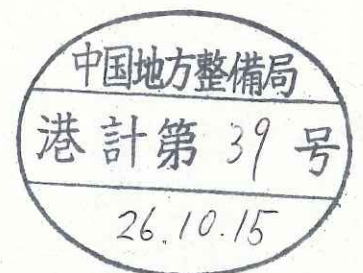 中国地方整備局
港計第39号
26.10.15